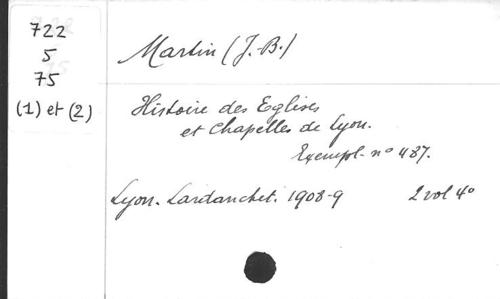 722
5
75
(1) et (2)
Martin (J.-B.)
Histoire des Eglises
et Chapelles de Lyon.
Exempl. nº 487.
Lyon. Lardanchet. 1908-9 2 vol 4º